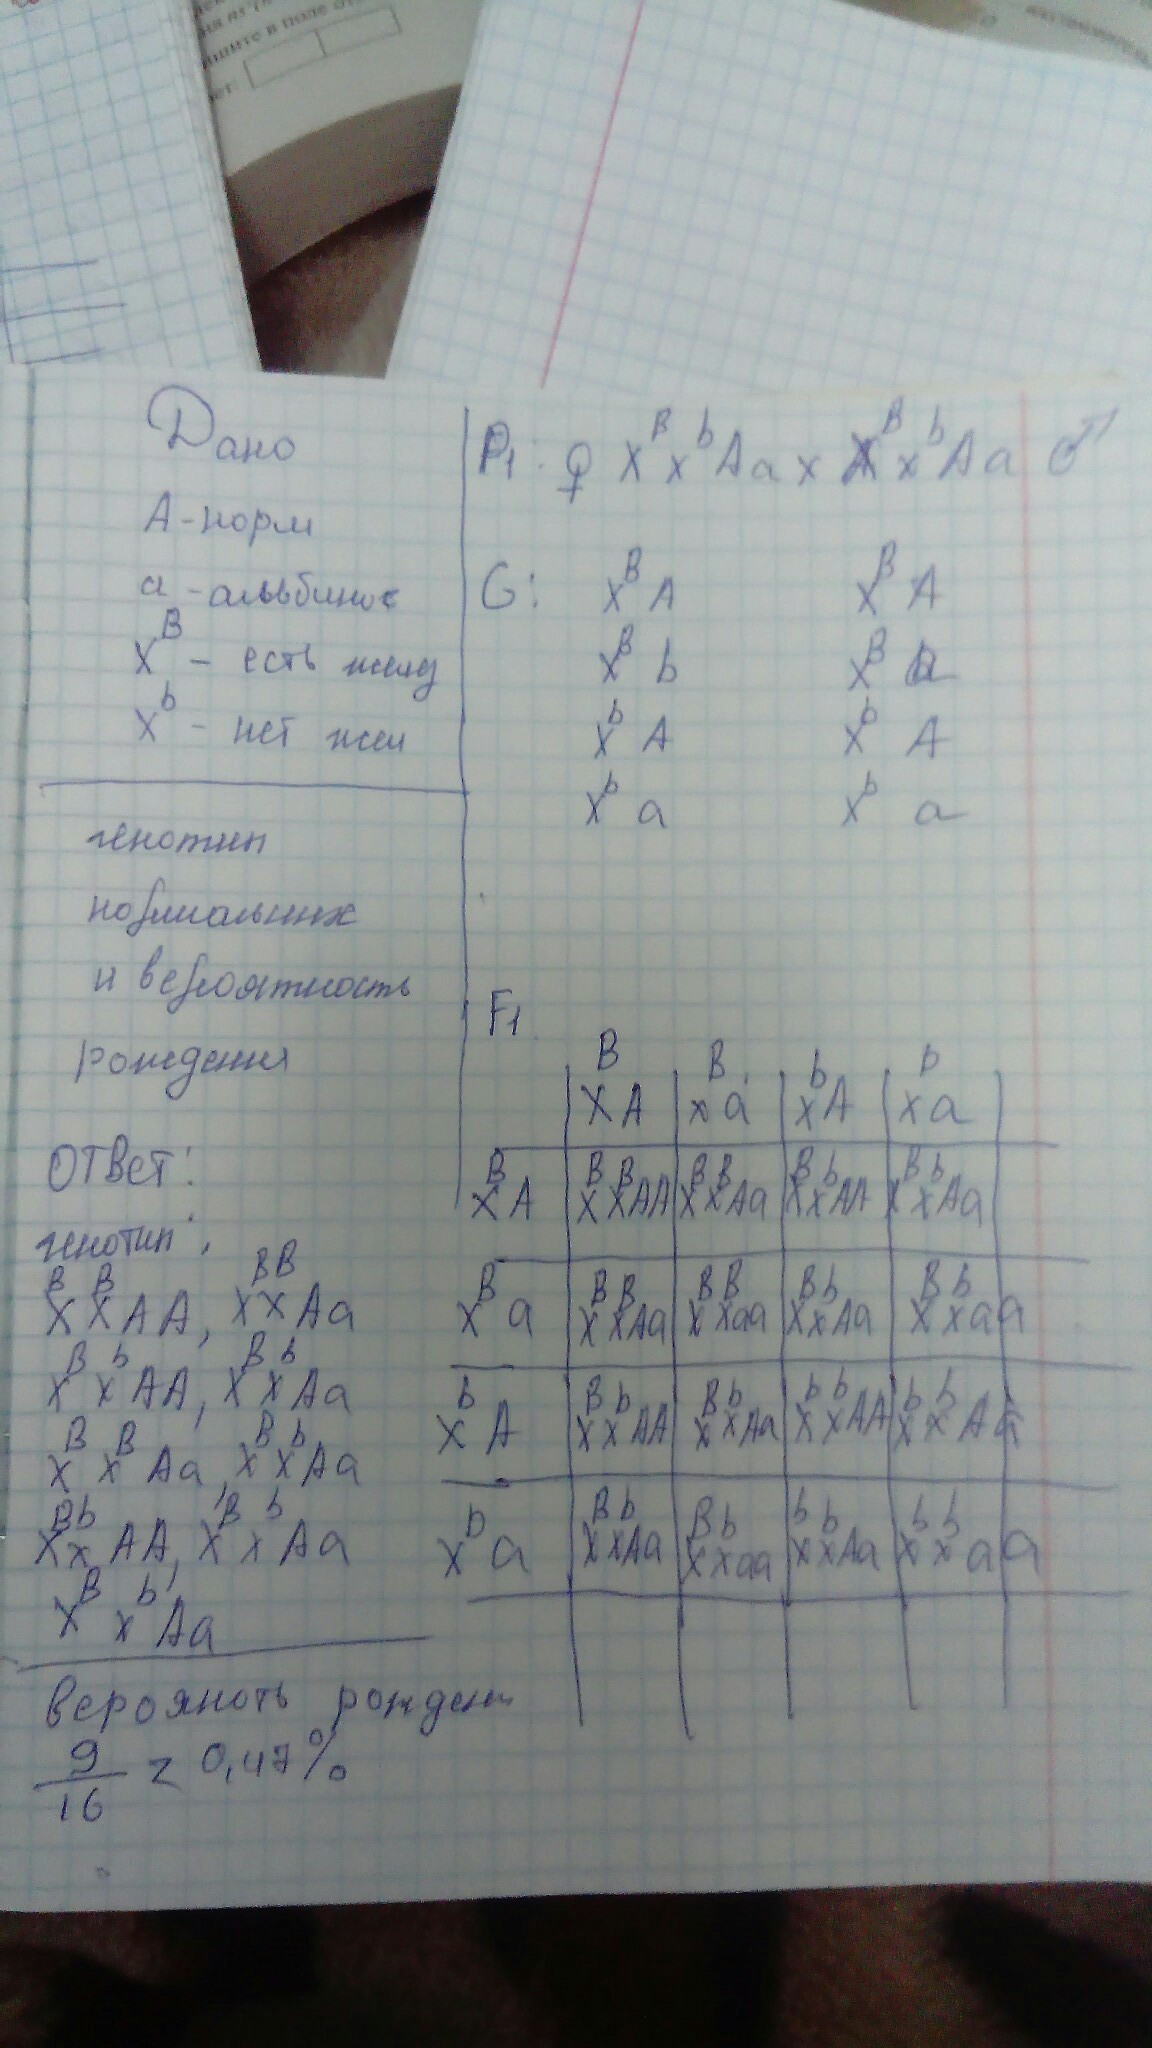 пишите в поле от
Дано
А - норм
а - альбинос
X^B - есть желез
X^b - нет жел
генотип
нормальних
и вероятность
рождения
Ответ:
генотип:
X^B X^B AA, X^B X^B Aa
X^B x^b AA, X^B X^b Aa
X^B X^B Aa, X^B X^b Aa
X^B x^b AA, X^B x^b Aa
X^B x^b Aa
верояноть рожден
9/16 = 0,47%
P1: ♀ X^B x^b Aa x X^B x^b Aa ♂
G: X^B A X^B A
X^B b X^B a
X^b A X^b A
X^b a X^b a
F1
X^B A x^B a x^b A x^b a
X^B A X^B X^B AA X^B X^B Aa X^B x^b AA X^B x^b Aa
X^B a X^B X^B Aa X^B X^B aa X^B x^b Aa X^B x^b aa
X^b A X^B x^b AA X^B x^b Aa x^b x^b AA x^b x^b Aa
X^b a X^B x^b Aa X^B x^b aa x^b x^b Aa x^b x^b aa